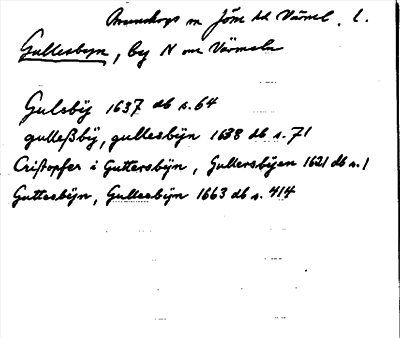 Brunskogs sn Jösse hd Värml. l.
Gullesbyn, by N om Värmeln
Gulsbÿ 1637 db s. 64
gulleßbÿ, gullesbÿn 1638 db s. 71
Cristopfer i Guttersbÿn, Gullersbÿen 1621 db s. 1
Guttesbÿn, Gullesbÿn 1663 db s. 414